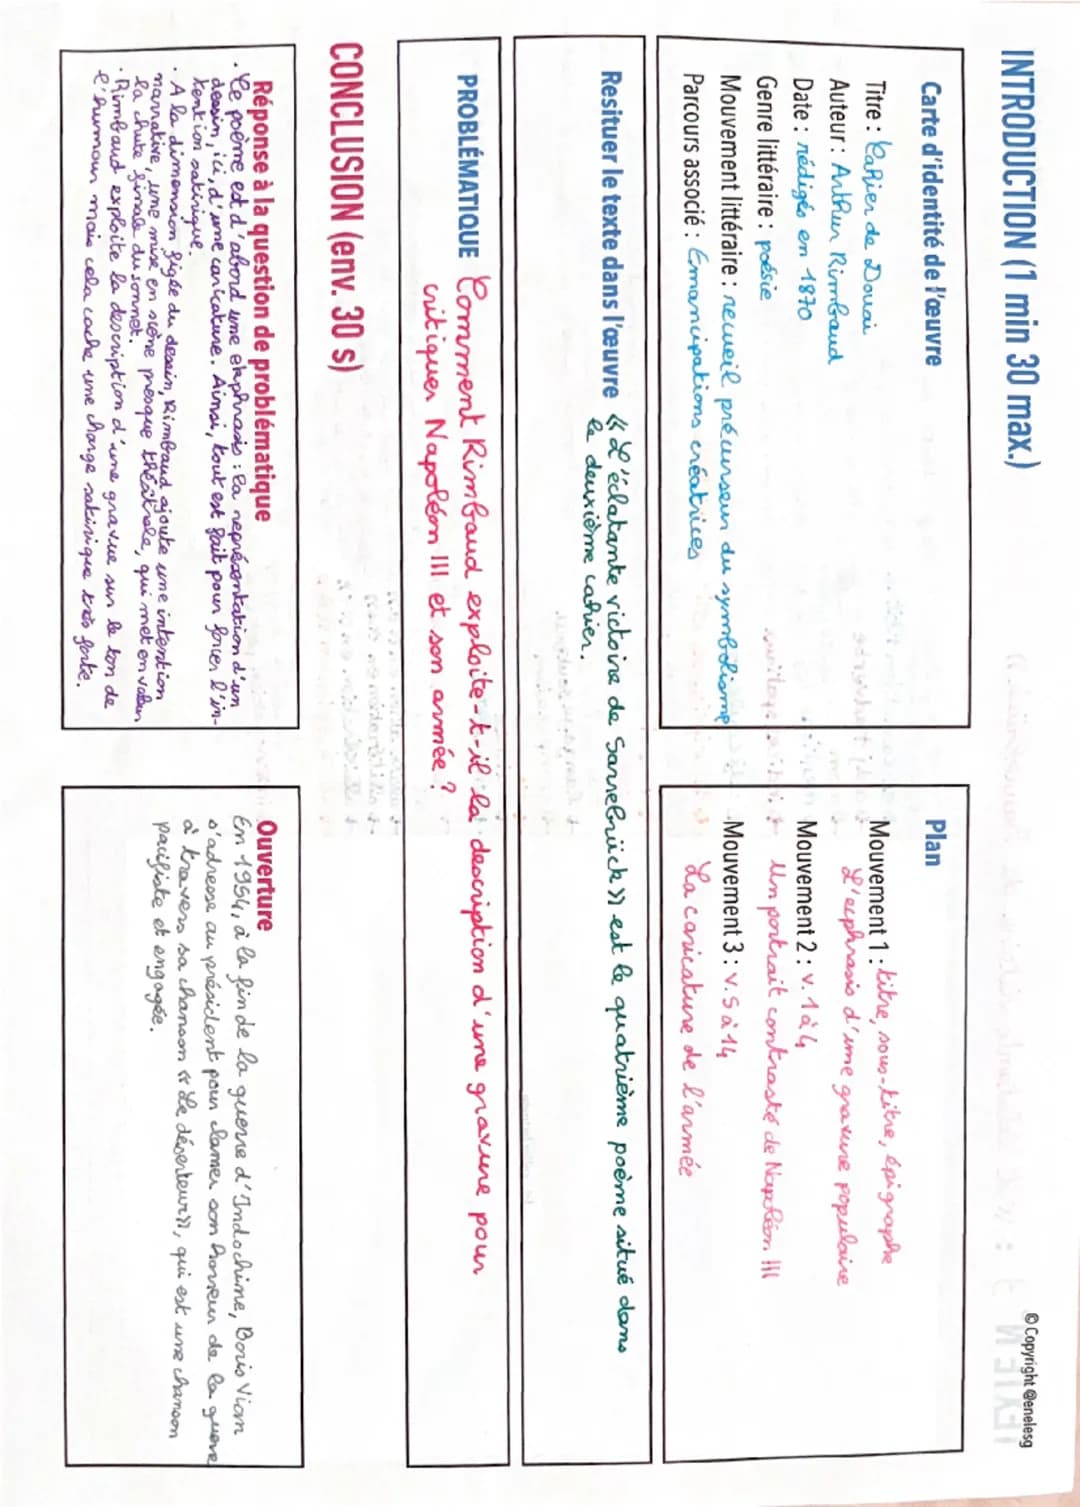 © Copyright @enelesg
INTRODUCTION (1 min 30 max.)
Carte d'identité de l'œuvre
Titre : Cahier de Douai
Auteur : Arthur Rimbaud
Date : rédigés en 1870
Genre littéraire : poésie
Mouvement littéraire : recueil précurseur du symbolisme
Parcours associé : Emancipations créatrices
Plan
Mouvement 1 : titre, sous-titre, épigraphe
L'ecphrasis d'une gravure populaire
Mouvement 2 : v. 1 à 4
Un portrait contrasté de Napoléon III
Mouvement 3 : v. 5 à 14
La caricature de l'armée
Resituer le texte dans l'œuvre « L'éclatante victoire de Sarrebrück » est le quatrième poème situé dans
le deuxième cahier.
PROBLÉMATIQUE Comment Rimbaud exploite-t-il la description d'une gravure pour
critiquer Napoléon III et son armée ?
CONCLUSION (env. 30 s)
Réponse à la question de problématique
· Ce poème est d'abord une ekphrasis : la représentation d'un
dessin, ici, d'une caricature. Ainsi, tout est fait pour forcer l'in-
tention satirique.
· A la dimension figée du dessin, Rimbaud ajoute une intention
narrative, une mise en scène presque théâtrale, qui met en valeur
la chute finale du sonnet.
· Rimbaud exploite la description d'une gravue sur le ton de
l'humour mais cela cache une charge satirique très forte.
Ouverture
En 1954, à la fin de la guerre d'Indochine, Boris Vian
s'adresse au président pour clamer son horreur de la guerre
à travers sa chanson « Le déserteur », qui est une chanson
pacifiste et engagée.